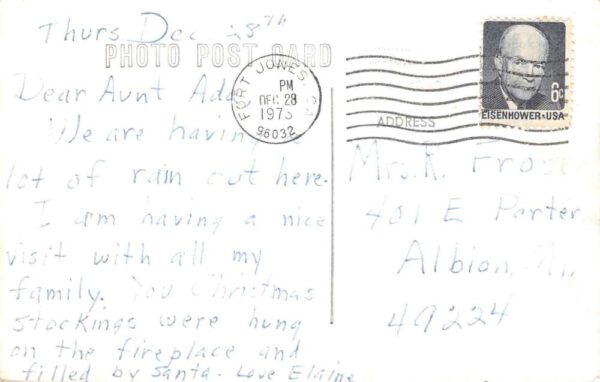 Thurs Dec 28th
PHOTO POST CARD
Dear Aunt Ada
We are having a
lot of rain out here.
I am having a nice
visit with all my
family. You Christmas
stockings were hung
on the fireplace and
filled by santa. Love Elaine
FORT JONES, CA
PM
DEC 28
96032
6c
EISENHOWER·USA
ADDRESS
Mrs. R. Froser
401 E Porter
Albion, Mi.
49224